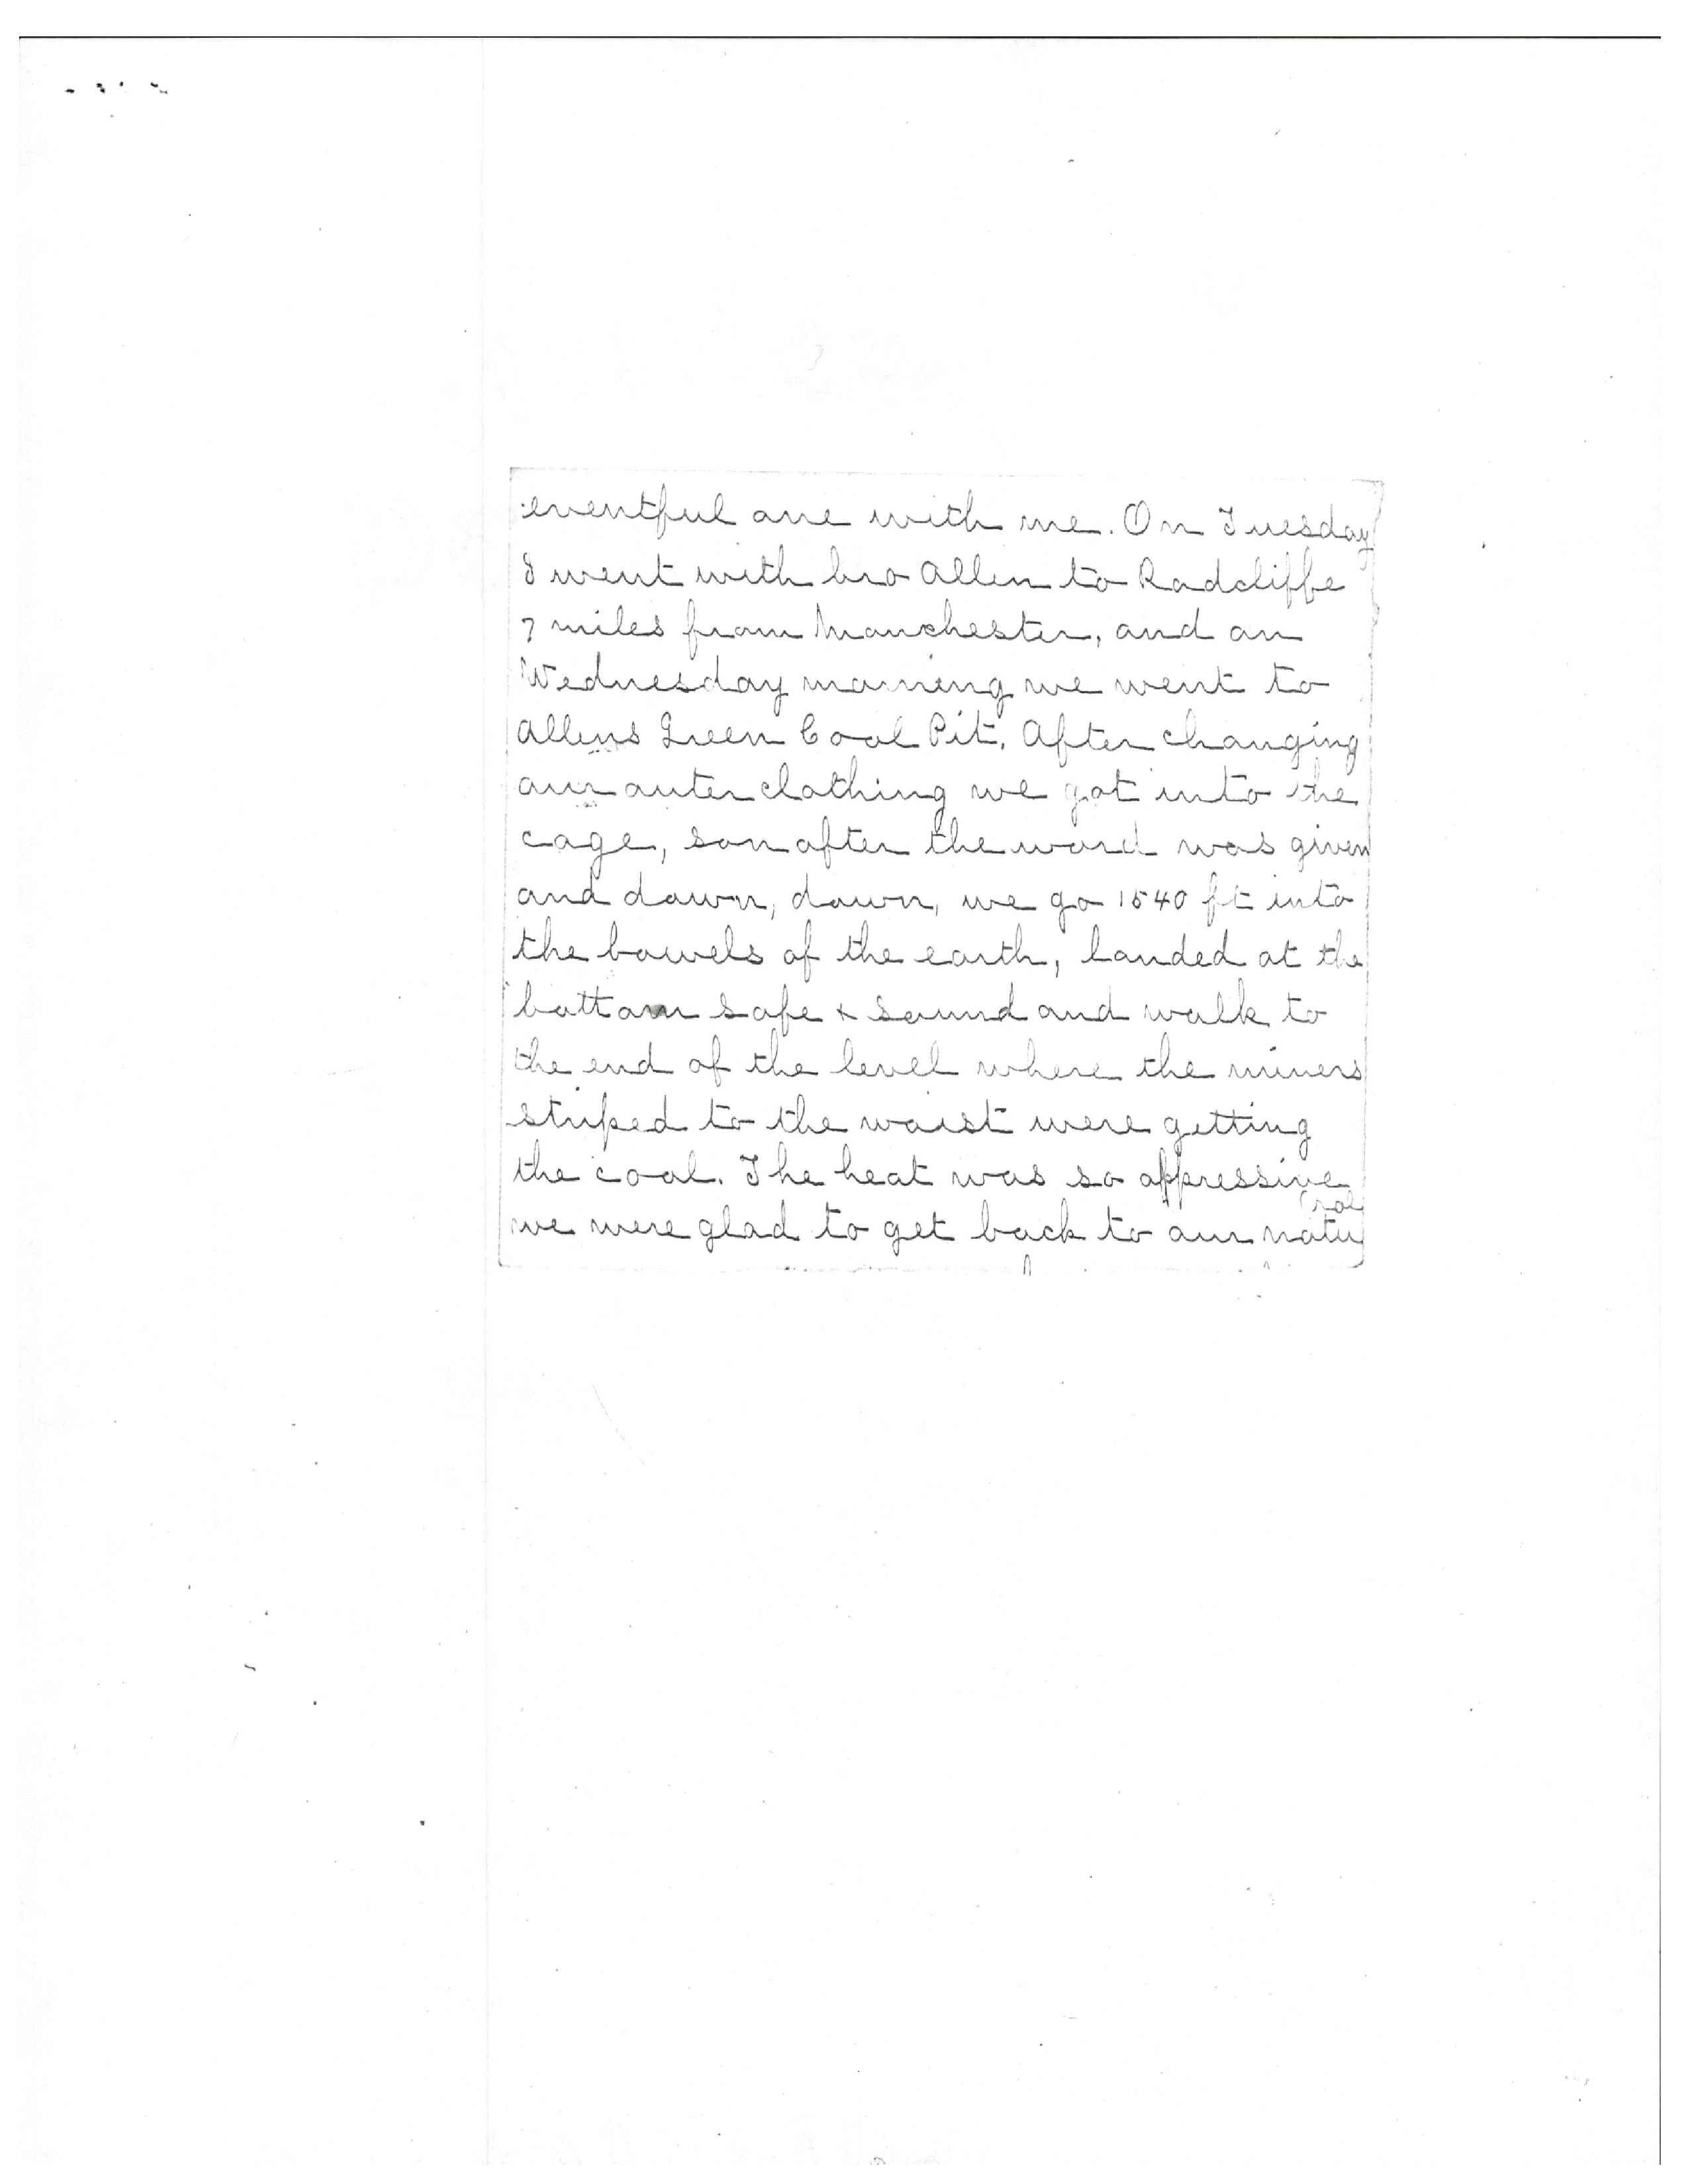 eventful one with me. On Tuesday
I went with bro Allen to Radcliffe
7 miles from Manchester, and on
Wednesday morning we went to
Allens Green Coal Pit. After changing
our outer clothing we got into the
cage, son after the word was given
and down, down, we go 1540 ft into
the bowels of the earth, landed at the
bottom safe & sound and walk to
the end of the level where the miners
striped to the waist were getting
the coal. The heat was so oppressive
we were glad to get back to our natu
(ral